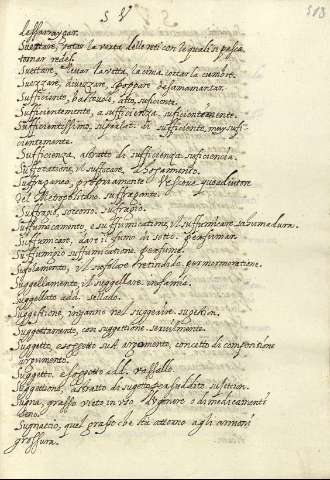 S V
Suettare, votar la vexta delle reti con le quali si pesca.
tomar redes.
Suettare, levar la vetta, la cima, cortar la cumbre.
Suezzare, diuezzare, spoppare, desamamantar.
Sufficiente, bastevole, atto, suficiente.
Sufficientemente, a sufficienza, suficientemente.
Sufficientissimo, superlat. di sufficiente, muy sufi-
cientemente.
Sufficienza, astratto di sufficienza suficiencia.
Suffocatione, il suffocare,
Suffraganeo, propriamente Vescovo
Del Metropolitano, sufragante.
Suffragio, soccorso, sufragio.
Suffumicamento, e suffumicatione, il suffumicare, saumadura.
Suffumicare, dare il fumo di sotto. perfumar.
Suffumigio suffumicatione, perfume.
Sufolamento, il sufolare
Suggellamento, il suggellare. infamia.
Suggellato add. sellado.
Suggestione, inganno nel suggerire sugestion.
Suggettamente, con suggettione, servilmente.
Suggetto, e soggetto sust. argomento, concetto di
argumento.
Suggetto, e soggetto add. vassallo.
Suggettione, astratto di sugetto
Sugna, grasso vieto in uso D'ugnere o di medicamenti
Sugnaccio, quel grasso che sta attorno agli arnioni
grossura.